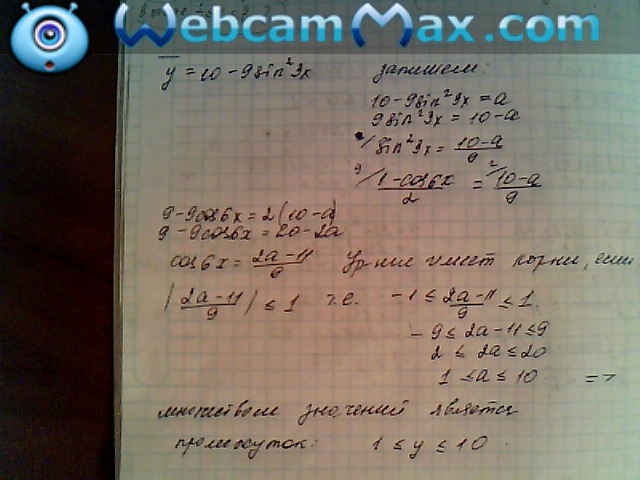 WebcamMax.com
y = 10 - 9sin²3x
запишем:
10 - 9sin²3x = a
9sin²3x = 10 - a
sin²3x = (10-a)/9
9/ (1-cos6x)/2 = 2/ (10-a)/9
9 - 9cos6x = 2(10-a)
9 - 9cos6x = 20 - 2a
cos6x = (2a-11)/9 Ур-ние имеет корни, если
|(2a-11)/9| ≤ 1 т.е. -1 ≤ (2a-11)/9 ≤ 1.
-9 ≤ 2a-11 ≤ 9
2 ≤ 2a ≤ 20
1 ≤ a ≤ 10 =>
множеством значений является
промежуток: 1 ≤ y ≤ 10.